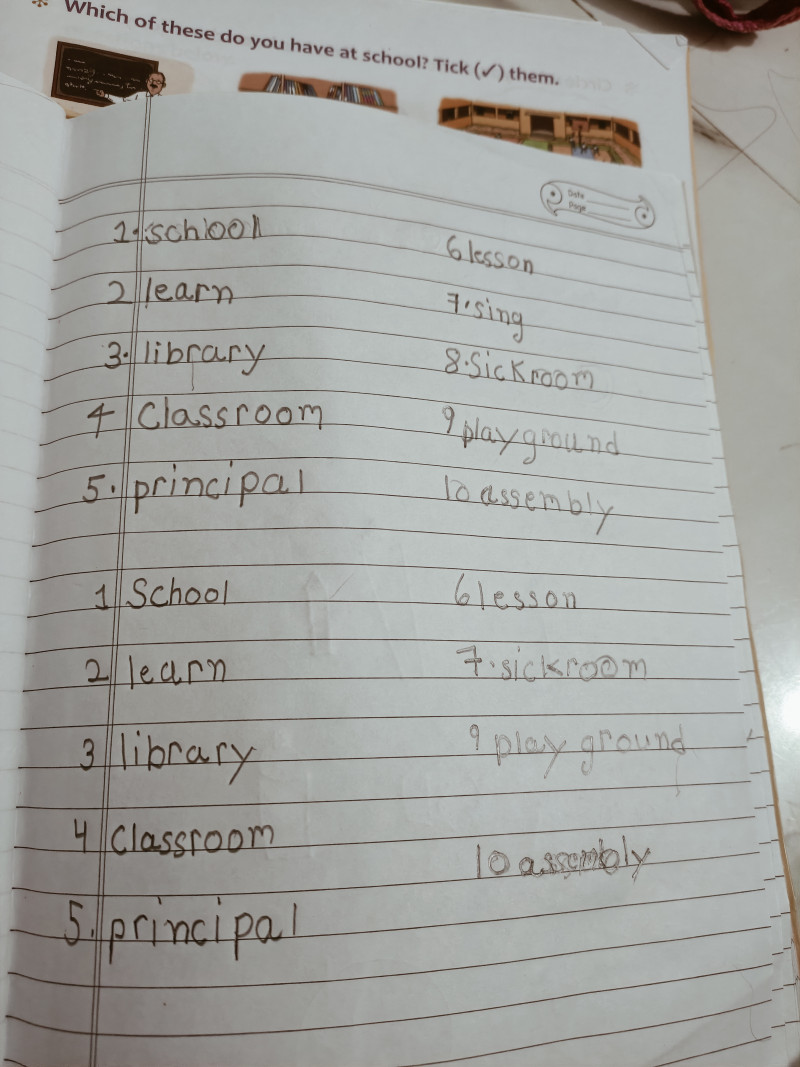 * Which of these do you have at school? Tick (✓) them.
Date
Page
1. schlool
2 learn
3. library
4 Classroom
5. principal
6 lesson
7. sing
8. Sickroom
9 playground
10 assembly
1 School
2 learn
3 library
4 Classroom
5. principal
6 lesson
7. sickroom
9 play ground
10 assembly